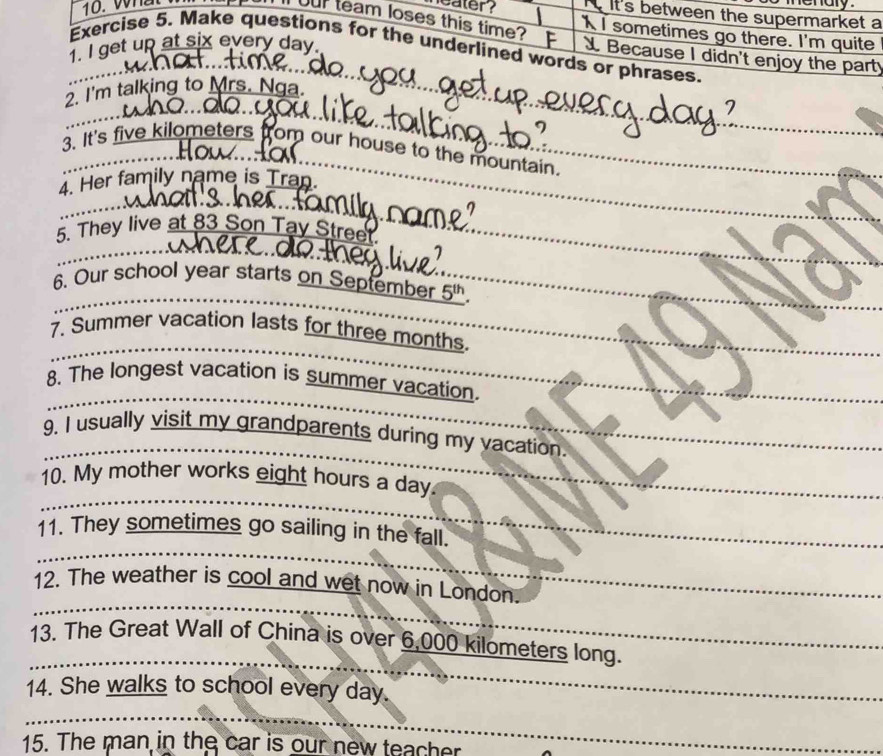 10.
our team loses this time?
I
It's between the supermarket a
F
I sometimes go there. I'm quite
Because I didn't enjoy the party
Exercise 5. Make questions for the underlined words or phrases.
1. I get up at six every day.
what time do you get up every day?
2. I'm talking to Mrs. Nga.
who do you like talking to?
3. It's five kilometers from our house to the mountain.
How far
4. Her family name is Tran.
what's her family name?
5. They live at 83 Son Tay Street.
where do they live?
6. Our school year starts on September 5th.
7. Summer vacation lasts for three months.
8. The longest vacation is summer vacation.
9. I usually visit my grandparents during my vacation.
10. My mother works eight hours a day.
11. They sometimes go sailing in the fall.
12. The weather is cool and wet now in London.
13. The Great Wall of China is over 6,000 kilometers long.
14. She walks to school every day.
15. The man in the car is our new teacher
ISH4U&ME 49 Nam